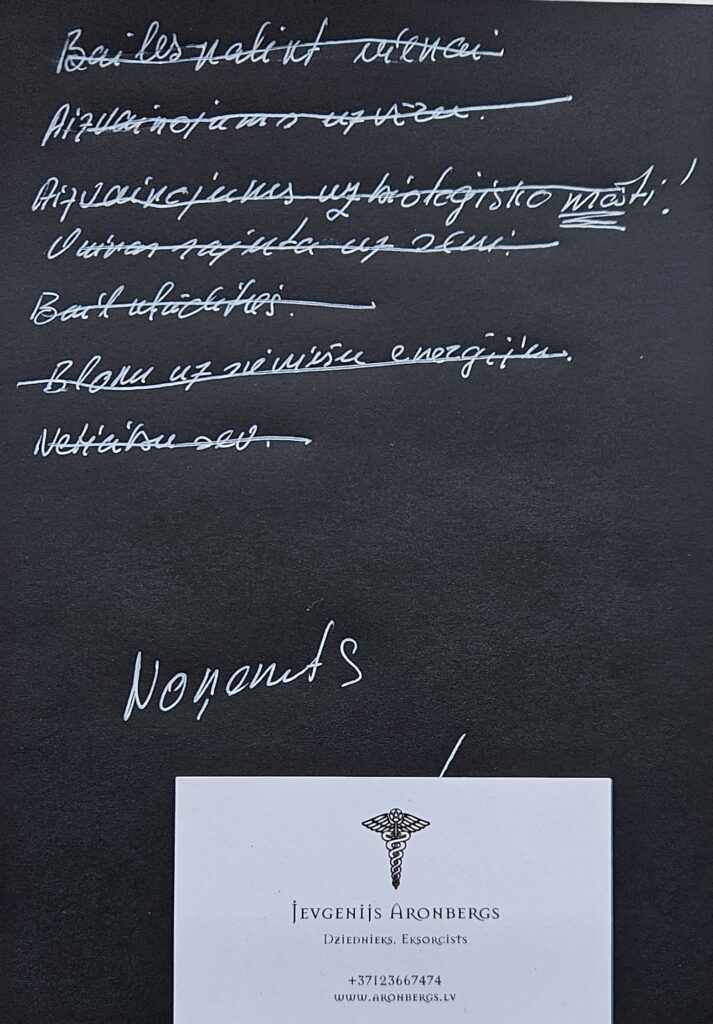 Bailes palikt vienai
Aizvainojums uz vīru.
Aizvainojums uz bioloģisko māti!
Vainas sajuta uz sevi.
Bail
Bloku uz sieviešu enerģiju.
Neticību sev.
Noņemts
JEVGENIJS ARONBERGS
DZIEDNIEKS, EKSORCISTS
+37123667474
WWW.ARONBERGS.LV